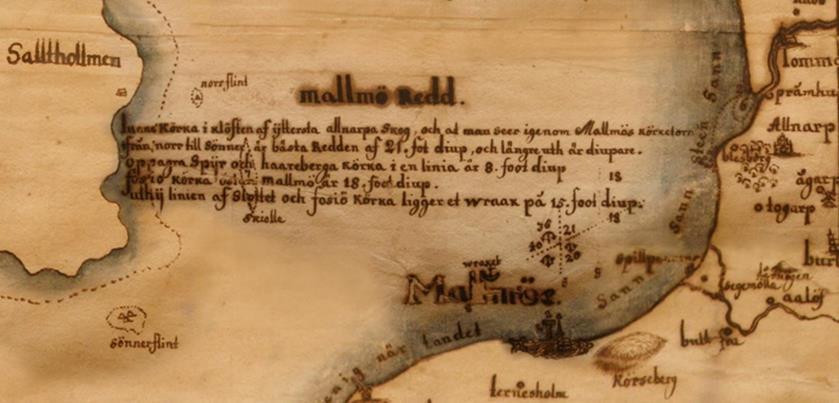 Saltholmen
norrflint
mallmö Redd.
Lunne Körka i klöften af ytterste allnarpa Skog, och at man seer igenom Mallmös körketorn
från norr till Sönner, är bästa Redden af 21. fot diup, och längre uth är diupare.
oppagra Spijr och haareberga Körka i en linia är 8. foot diup
fosiö Körka mallmö är 18. foot diup.
uthij linien af Slottet och fosiö Körka ligger et wraak på 15. foot diup.
Skiolle
18
18
21
20
wraket
Mallmöe.
Sönnerflint
Sann
Steen
Sann
Sann
spillpenning
nig när landet
Lomm
Allnarp
otogarp
segemölla
aalöf
Körseberg
ternesholm